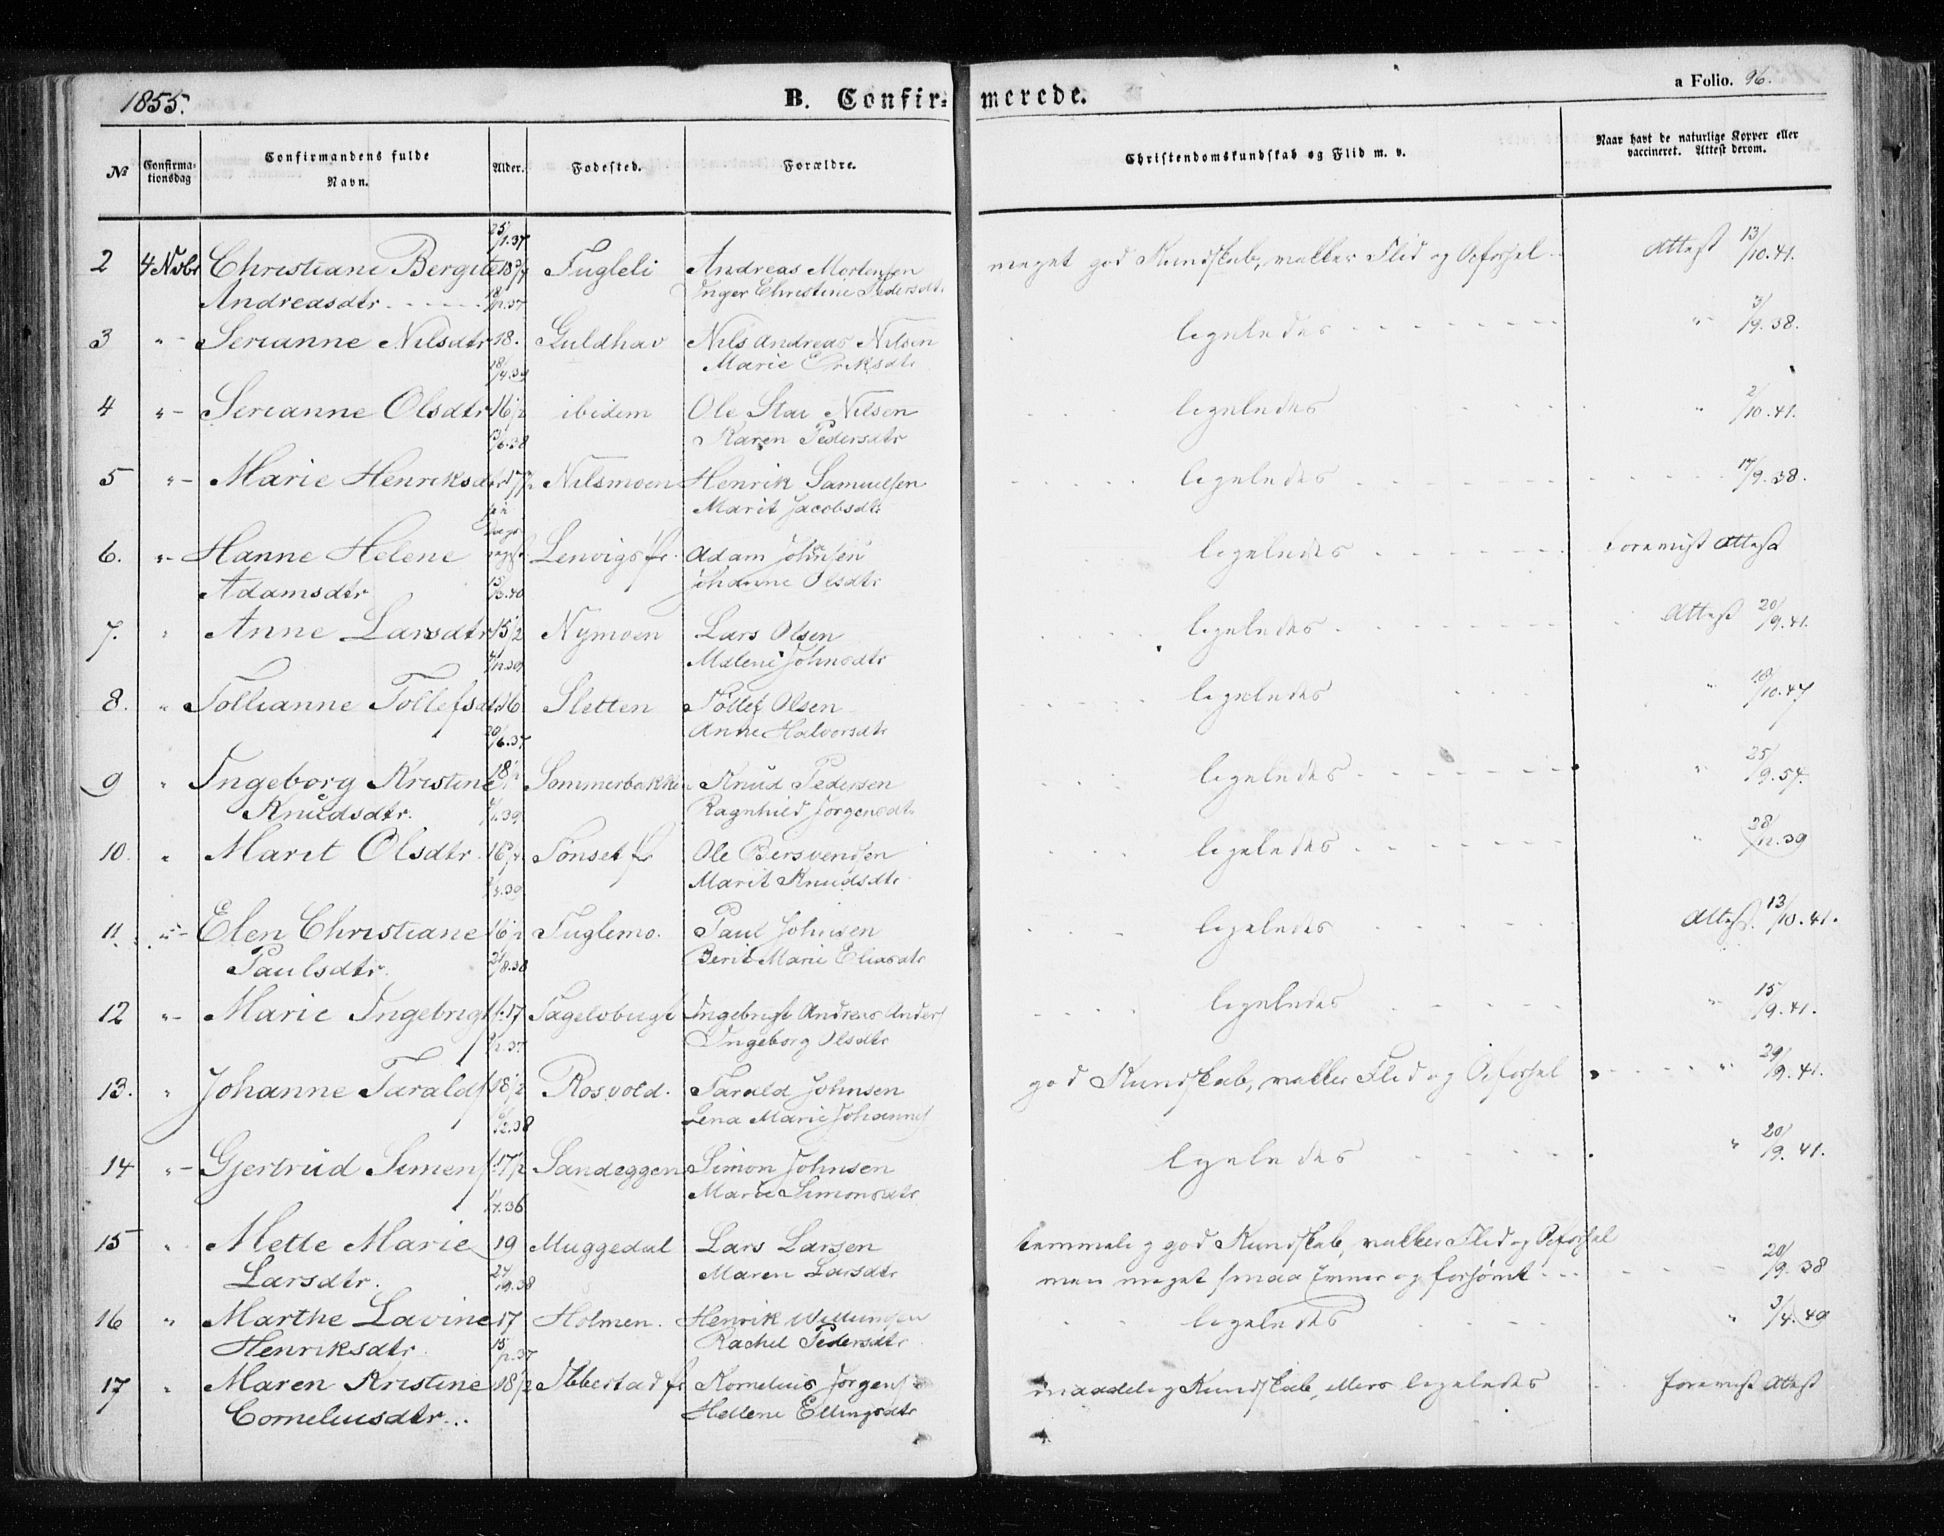 1855.
B. Confirmerede.
a Folio. 96.
No
Confirmationsdag
Confirmandens fulde Navn.
Alder.
Fødested.
Forældre.
Christendomskundskab og Flid m. v.
Naar havt de naturlige Kopper eller vaccineret. Attest derom.
25/1.37
2 4 Nvbr Christiane Bergite 18 3/4 Fugleli Andreas Mortensen meget god Kundskab, vakker Flid og Opførsel Attest 13/10.41.
Andreasdtr Inger Christine Pedersdtr
3 " Serianne Nilsdtr 18. Guldhav Nils Andreas Nilsen ligeledes " 3/9.38.
Marie Eriksdtr
18/4.39
4 " Serianne Olsdtr 16 1/2 ibidem Ole Nilsen ligeledes " 2/10.41.
Karen Pedersdtr
5 " Marie Henriksdtr 17 Nilsmoen Henrik Samuelsen ligeledes 17/9.38.
Marit Jacobsdtr
6. " Hanne Helene Lenvigs Adam Johnsen ligeledes forevist Attest
Adamsdtr Johanne Olsdtr
15/3.40
7. " Anne Larsdtr 15 1/2 Nymoen Lars Olsen ligeledes Attest 20/9.41.
Malene Johnsdtr
8. " Tollianne Tollefsdtr 16 Sletten Tollef Olsen ligeledes " 18/10.47
Anne Halvorsdtr
20/6.37
9 " Ingeborg Kristine 18 Sommerbakke Knud Pedersen ligeledes " 25/9.54.
Knudsdtr. Ragnhild Jørgensdtr
10. " Marit Olsdtr. 16 3/4 Tønset Ole Bersvendsen ligeledes " 28/12.39
Marit Knudsdtr
11. " Elen Christiane 16 1/2 Fuglemo. Paul Johnsen ligeledes Attest. 13/10.41.
Paulsdtr. Berit Marie Eliasdtr
21/8.38
12 " Marie Ingebrigt 17 Tagelvbugt Ingebrigt Andreas Anders ligeledes " 15/9.41.
Ingeborg Olsdtr
13. " Johanne Tarald 18 1/2 Rosvold. Tarald Johnsen god Kundskab, vakker Flid og Opførsel " 29/9.41.
Lena Marie Johannes
14 " Gjertrud Simens 17 1/2 Sandeggen Simon Johnsen ligeledes " 20/9.41.
Marie Simonsdtr
15 " Mette Marie 19 Muggedal Lars Larsen temmelig god Kundskab, vakker Flid og Opførsel
Larsdtr. Maren Larsdtr men meget smaa Evner og forsømt 20/9.38
16 " Marthe Lavine 17 Holmen. Henrik Willumsen ligeledes " 3/4.49
Henriksdtr Rachel Pedersdtr
15/2.37
17 " Maren Kristine 18 1/2 Ibbestad Kornelius Jørgens maadelig Kundskab, ellers ligeledes forevist Attest
Corneliusdtr.. Hellene Ellingsdtr